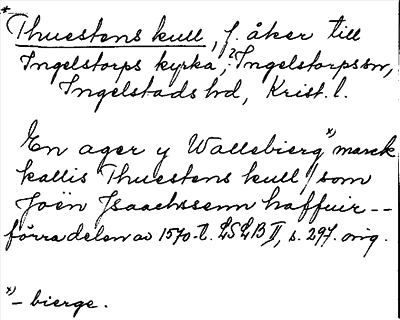 * Thuestens kull, f. åker till
Ingelstorps kyrka, Ingelstorps sn,
Ingelstads hd, Krist. l.
En ager y Wallebierg x) marck
kallis Thuestens kull / som
Joën Isaachssenn haffuir --
förra delen av 1570-t. LSLB II, s. 297. orig.
x) - bierge.